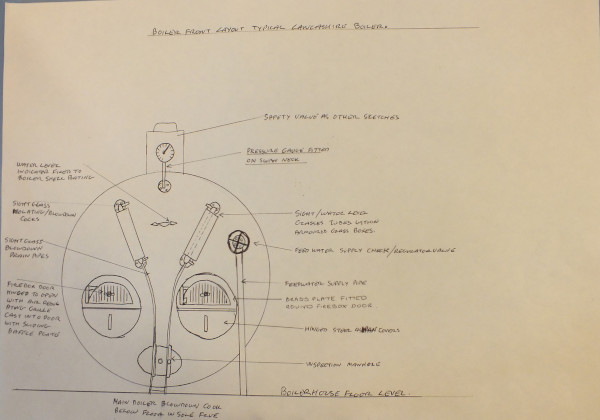 BOILER FRONT LAYOUT TYPICAL LANCASHIRE BOILER.
SAFETY VALVE AS OTHER SKETCHES
PRESSURE GAUGE FITTED
ON SWAN NECK
WATER LEVEL
INDICATOR FIXED TO
BOILER SHELL PLATING
SIGHTGLASS
ISOLATING/BLOWDOWN
COCKS
SIGHT/WATER LEVEL
GLASSES TUBES WITHIN
ARMOURED GLASS BOXES
SIGHTGLASS
BLOWDOWN
DRAIN PIPES
FEED WATER SUPPLY CHECK/REGULATOR VALVE
FIREBOX DOOR
HINGED TO OPEN
WITH AIR
GRILLE
CAST INTO DOOR
WITH SLIDING
BAFFLE PLATE
FEEDWATER SUPPLY PIPE
BRASS PLATE FITTED
ROUND FIREBOX DOOR
HINGED STEEL COVERS
INSPECTION MANHOLE
BOILERHOUSE FLOOR LEVEL.
MAIN BOILER BLOWDOWN COCK
BELOW FRONT IN SOLE FLUE